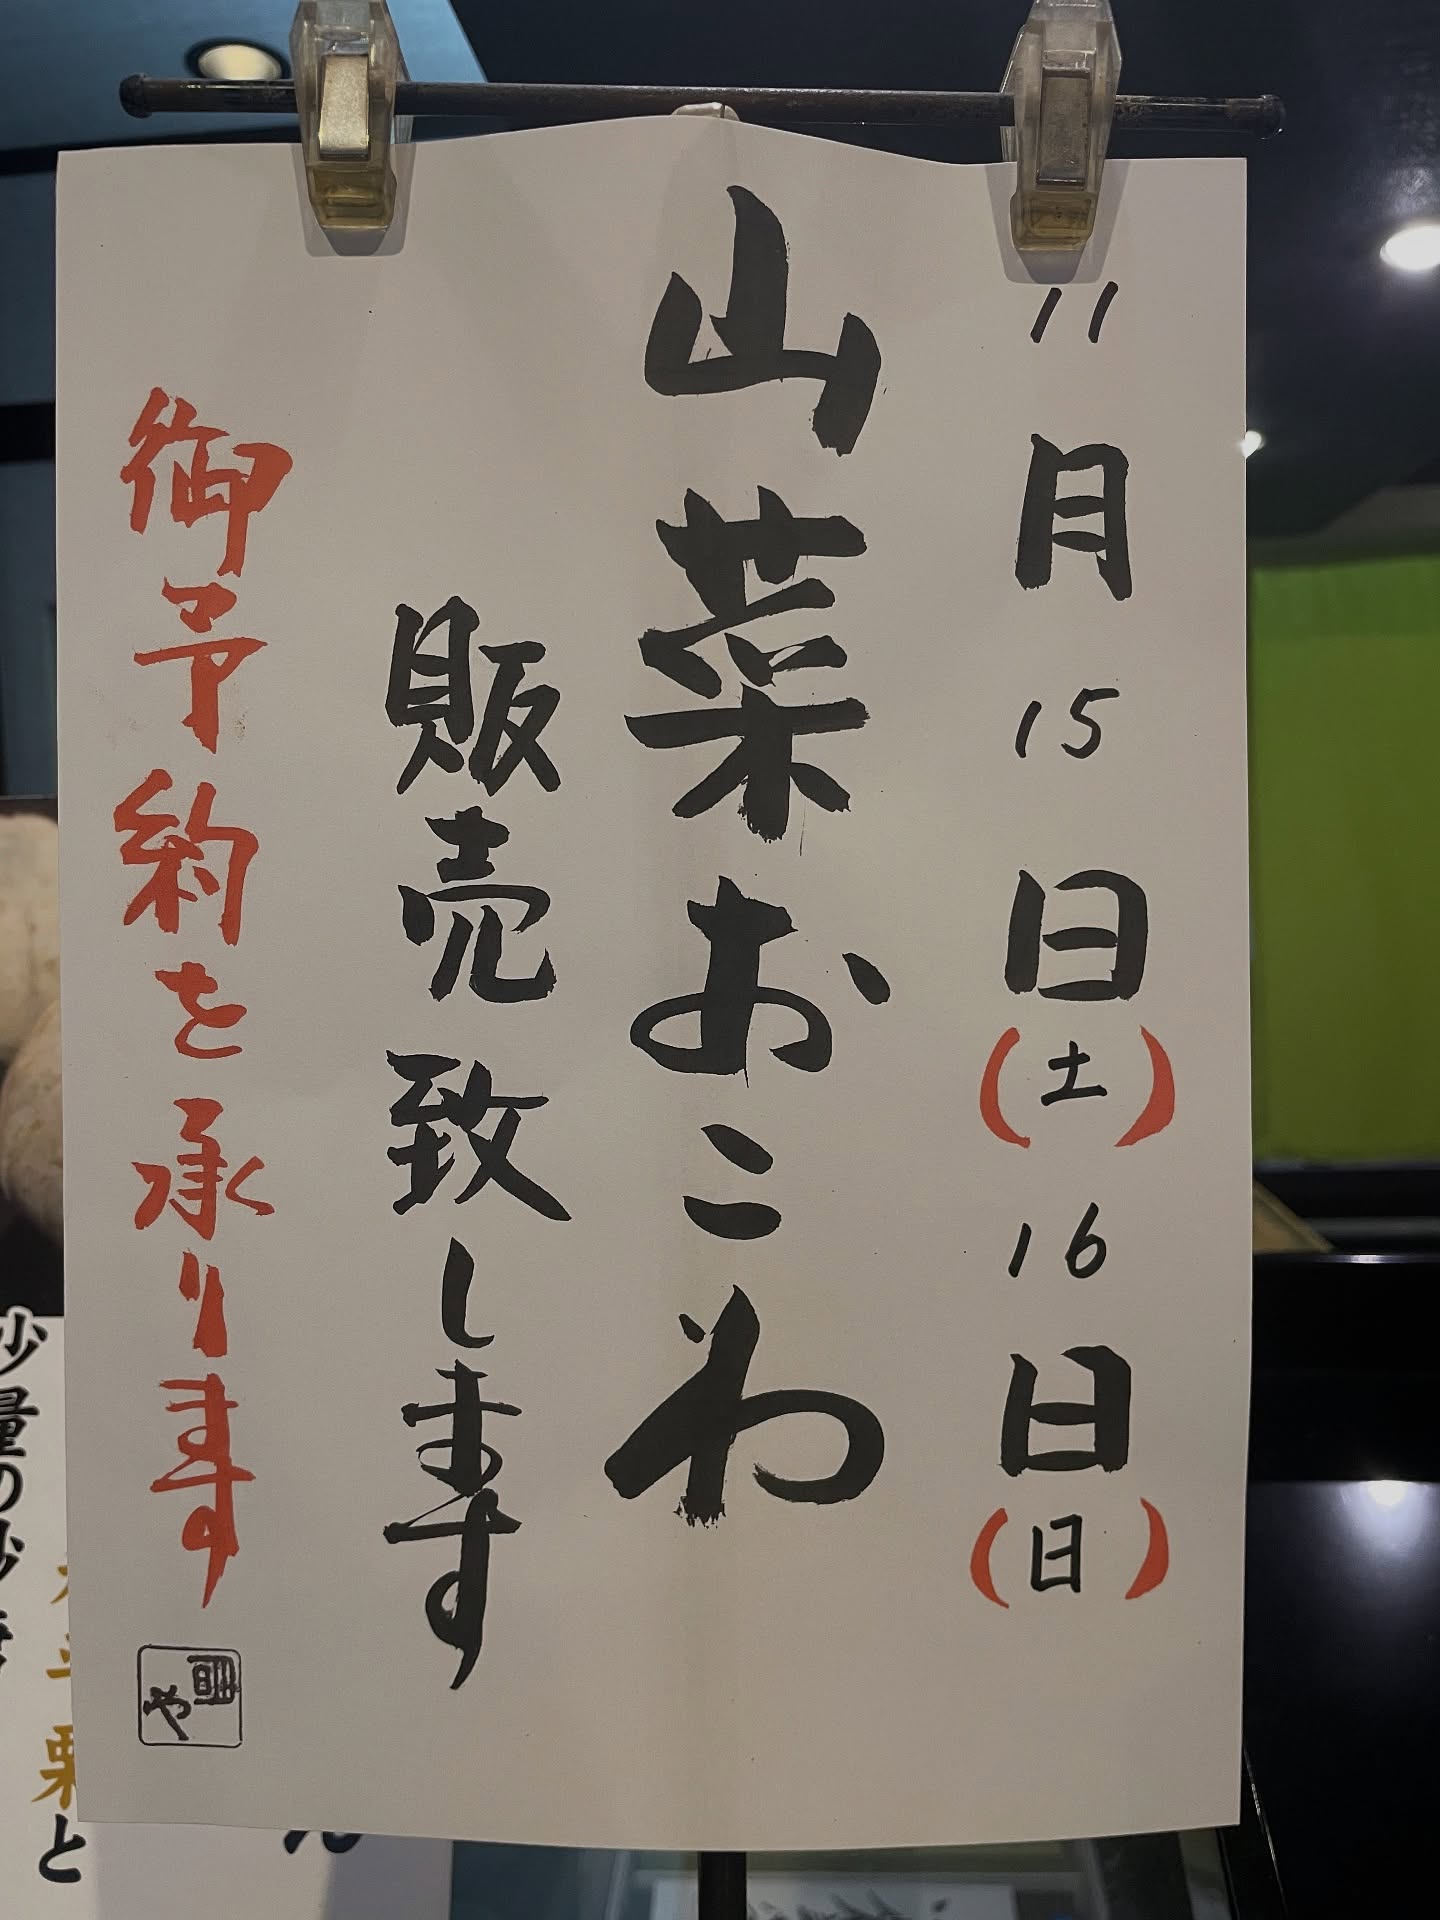 11月15日(土)16日(日)
山菜おこわ
販売致します
御予約を承ります
や
少量の
栗と